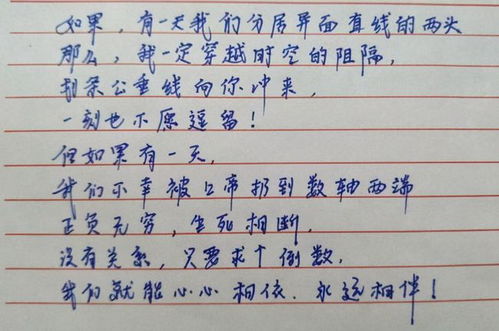 如果，有一天我们分居异面直线的两头
那么，我一定穿越时空的阻隔，
划条公垂线向你冲来，
一刻也不愿逗留！
但如果有一天，
我们不幸被上帝扔到数轴两端
正负无穷，生死相断，
没有关系，只要求个倒数，
我们就能心心相依．永远相伴！